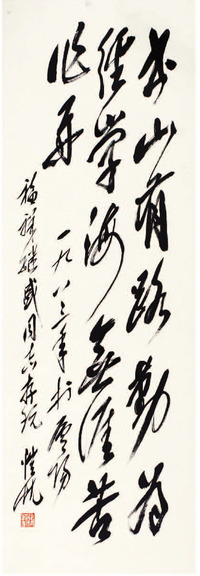 书山有路勤为
径学海無涯苦
作舟
一九八三年于廬陽
福祥继盛同志存玩